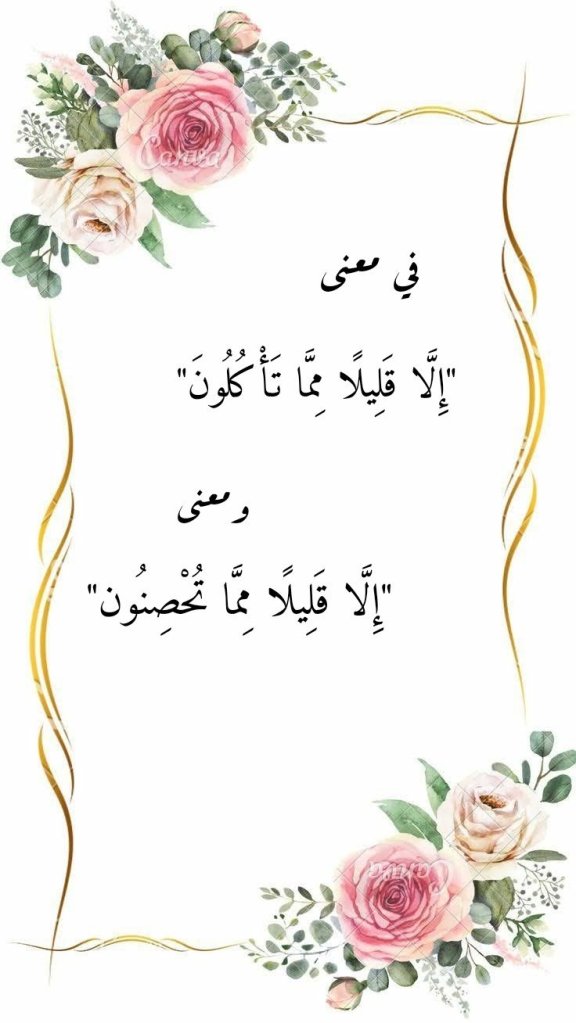 Canva
في معنى
"إِلَّا قَلِيلًا مِمَّا تَأْكُلُونَ"
ومعنى
"إِلَّا قَلِيلًا مِمَّا تُحْصِنُون"
Canva